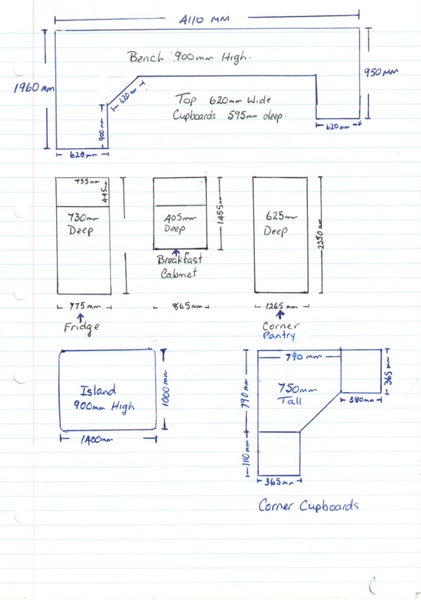 4110 mm
Bench 900mm High.
1960mm
950mm
620mm
Top 620mm Wide
Cupboards 595mm deep.
900mm
620mm
620mm
735mm
445mm
730mm
Deep
405mm
Deep
1455mm
625mm
Deep
2330mm
Breakfast
Cabinet
775mm
865mm
1265mm
Fridge
Corner
Pantry
790 mm
365mm
Island
900mm High
1000mm
750mm
Tall
790 mm
380mm
1400mm
1110mm
365mm
Corner Cupboards